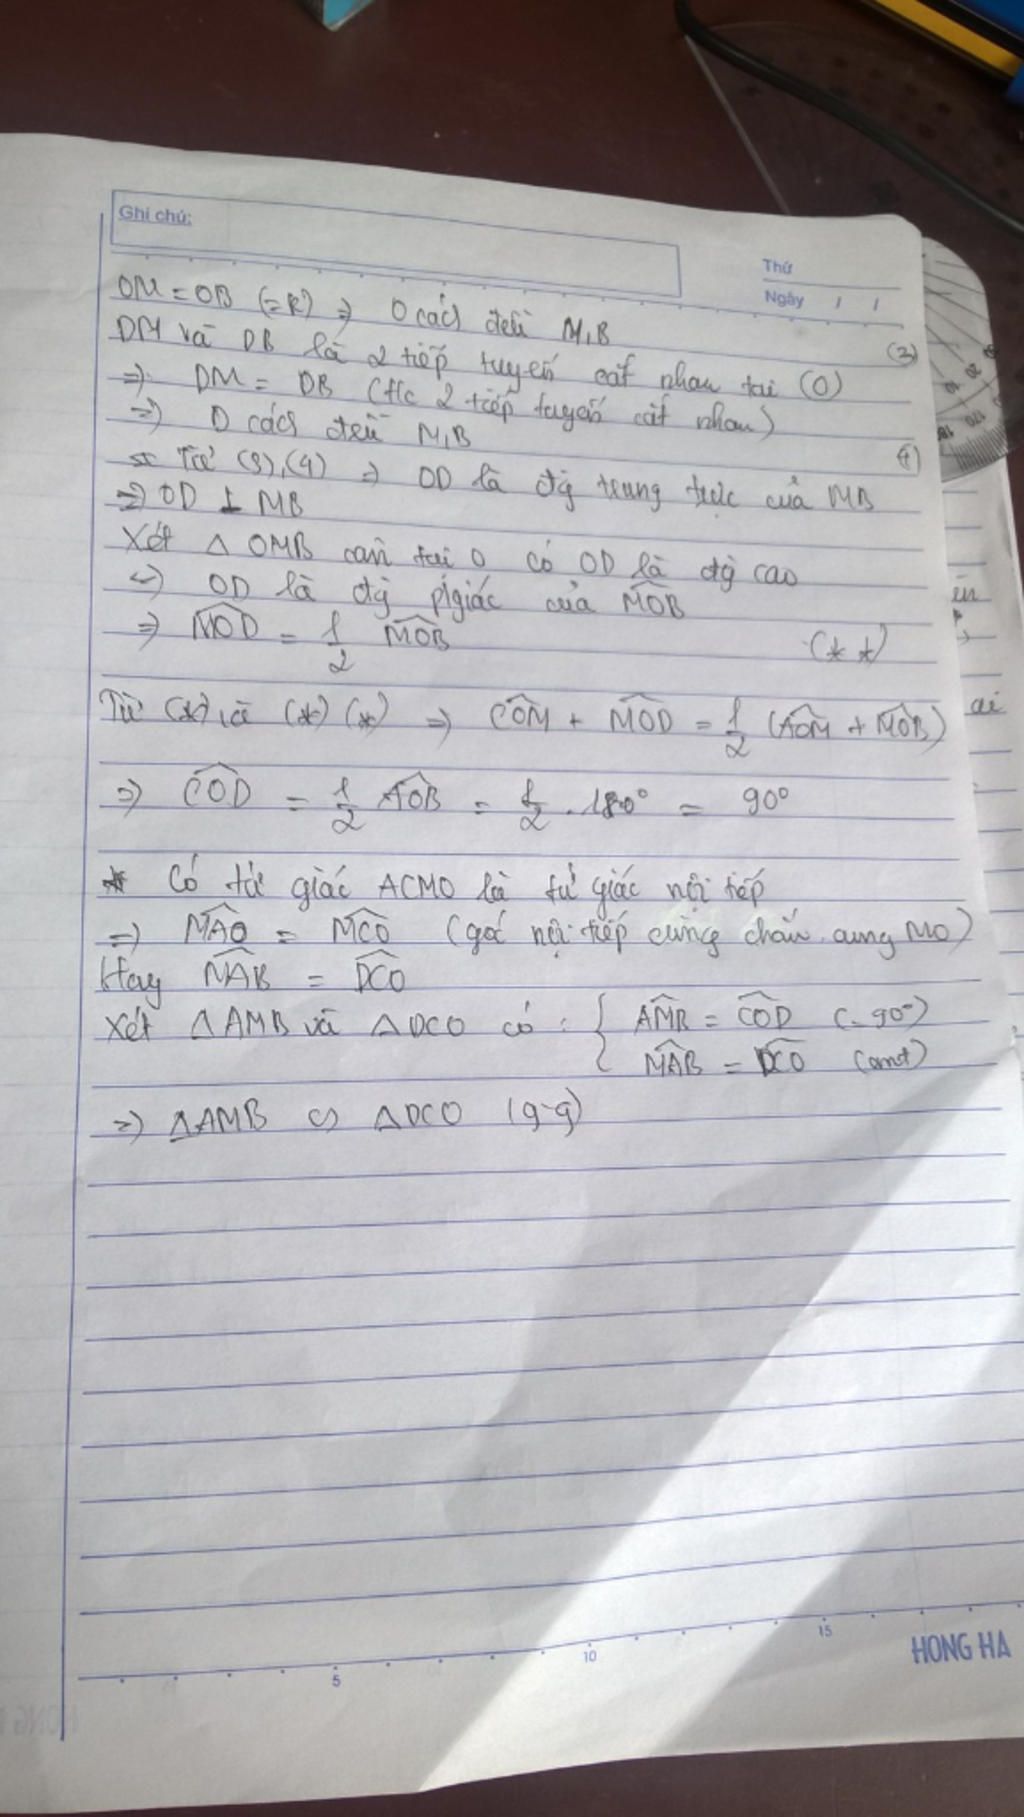 Ghi chú:
Thứ
Ngày / /
OM = OB (=R) => O cách đều M,B (3)
DM và DB là 2 tiếp tuyến cắt nhau tại (O)
=> DM = DB (t/c 2 tiếp tuyến cắt nhau)
=> D cách đều M,B (4)
Từ (3),(4) => OD là đg trung trực của MB
=> OD ⊥ MB
Xét △ OMB cân tại O có OD là đg cao
=> OD là đg p/giác của MOB
=> MOD = 1/2 MOB (* *)
Từ (*) và (*)(*) => COM + MOD = 1/2 (AOM + MOB)
=> COD = 1/2 AOB = 1/2 . 180° = 90°
* Có tứ giác ACMO là tứ giác nội tiếp
=> MAO = MCO (góc nội tiếp cùng chắn cung MO)
Hay MAB = DCO
Xét △AMB và △DCO có : { AMB = COD (= 90°)
MAB = DCO (cmt)
=> △AMB ∽ △DCO (g-g)
5 10 15
HONG HA